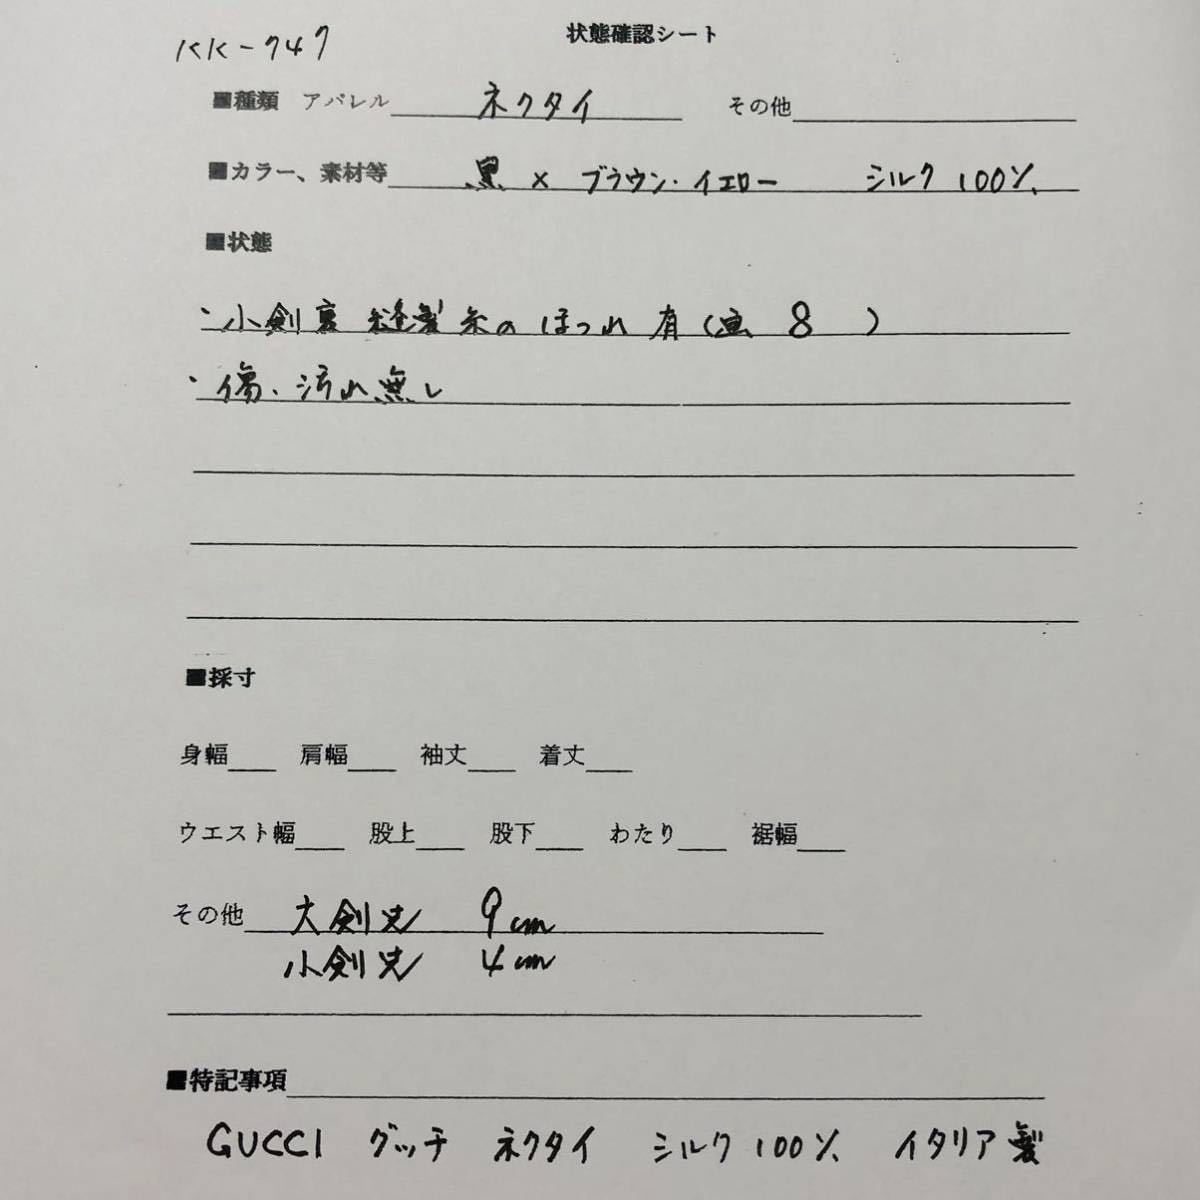 状態確認シート
KK-747
■種類 アパレル ネクタイ その他
■カラー、素材等 黒 × ブラウン・イエロー シルク 100%
■状態
・小剣裏 縫製糸のほつれ有(画 8 )
・傷、汚れ無し
■採寸
身幅 肩幅 袖丈 着丈
ウエスト幅 股上 股下 わたり 裾幅
その他 大剣先 9cm
小剣先 4cm
■特記事項
GUCCI グッチ ネクタイ シルク 100% イタリア製